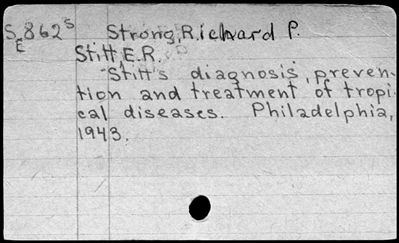 S862S Strong, Richard P.
E Stitt, E.R.
Stitt's diagnosis, preven-
tion and treatment of tropi-
cal diseases. Philadelphia,
1943.